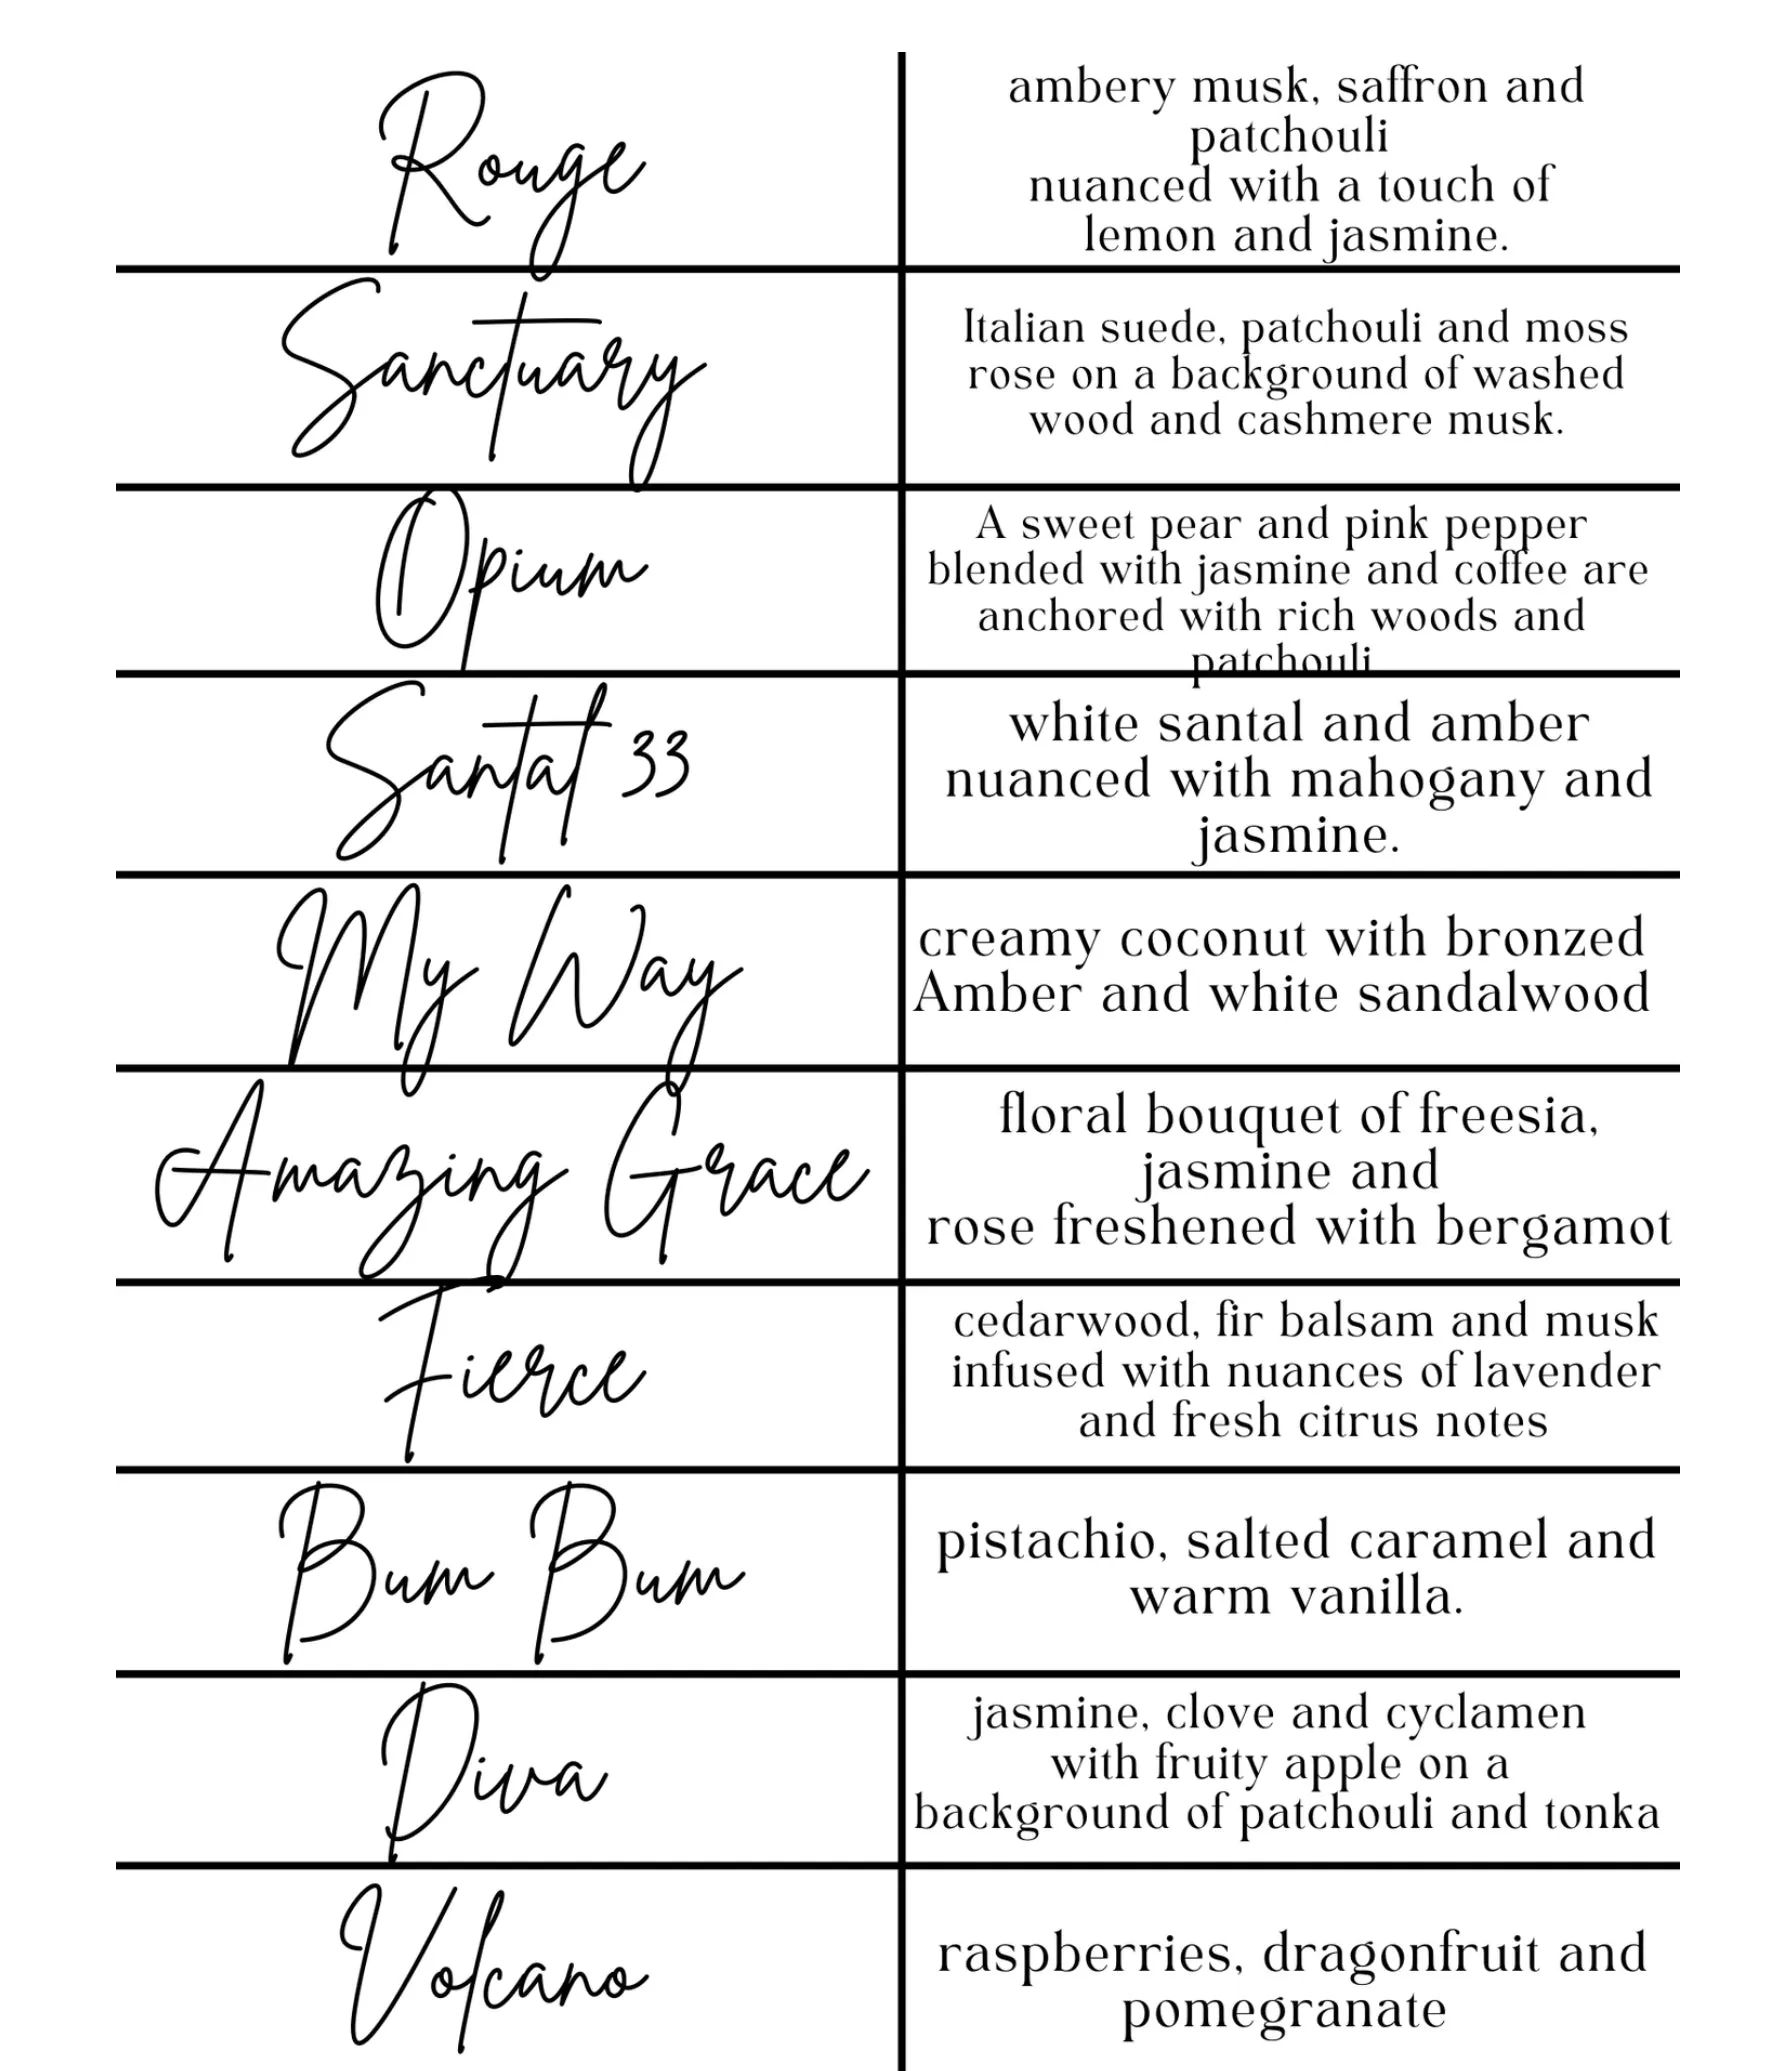 Rouge
ambery musk, saffron and
patchouli
nuanced with a touch of
lemon and jasmine.
Sanctuary
Italian suede, patchouli and moss
rose on a background of washed
wood and cashmere musk.
Opium
A sweet pear and pink pepper
blended with jasmine and coffee are
anchored with rich woods and
patchouli
Santal 33
white santal and amber
nuanced with mahogany and
jasmine.
My Way
creamy coconut with bronzed
Amber and white sandalwood
Amazing Grace
floral bouquet of freesia,
jasmine and
rose freshened with bergamot
Fierce
cedarwood, fir balsam and musk
infused with nuances of lavender
and fresh citrus notes
Bum Bum
pistachio, salted caramel and
warm vanilla.
Diva
jasmine, clove and cyclamen
with fruity apple on a
background of patchouli and tonka
Volcano
raspberries, dragonfruit and
pomegranate